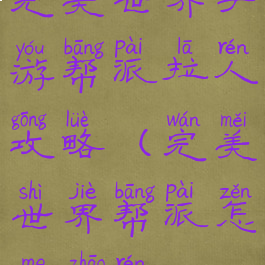 完美世界手
yóu bāng pài lā rén
游帮派拉人
gōng lüè wán měi
攻略（完美
shì jiè bāng pài zěn
世界帮派怎
me zhāo rén